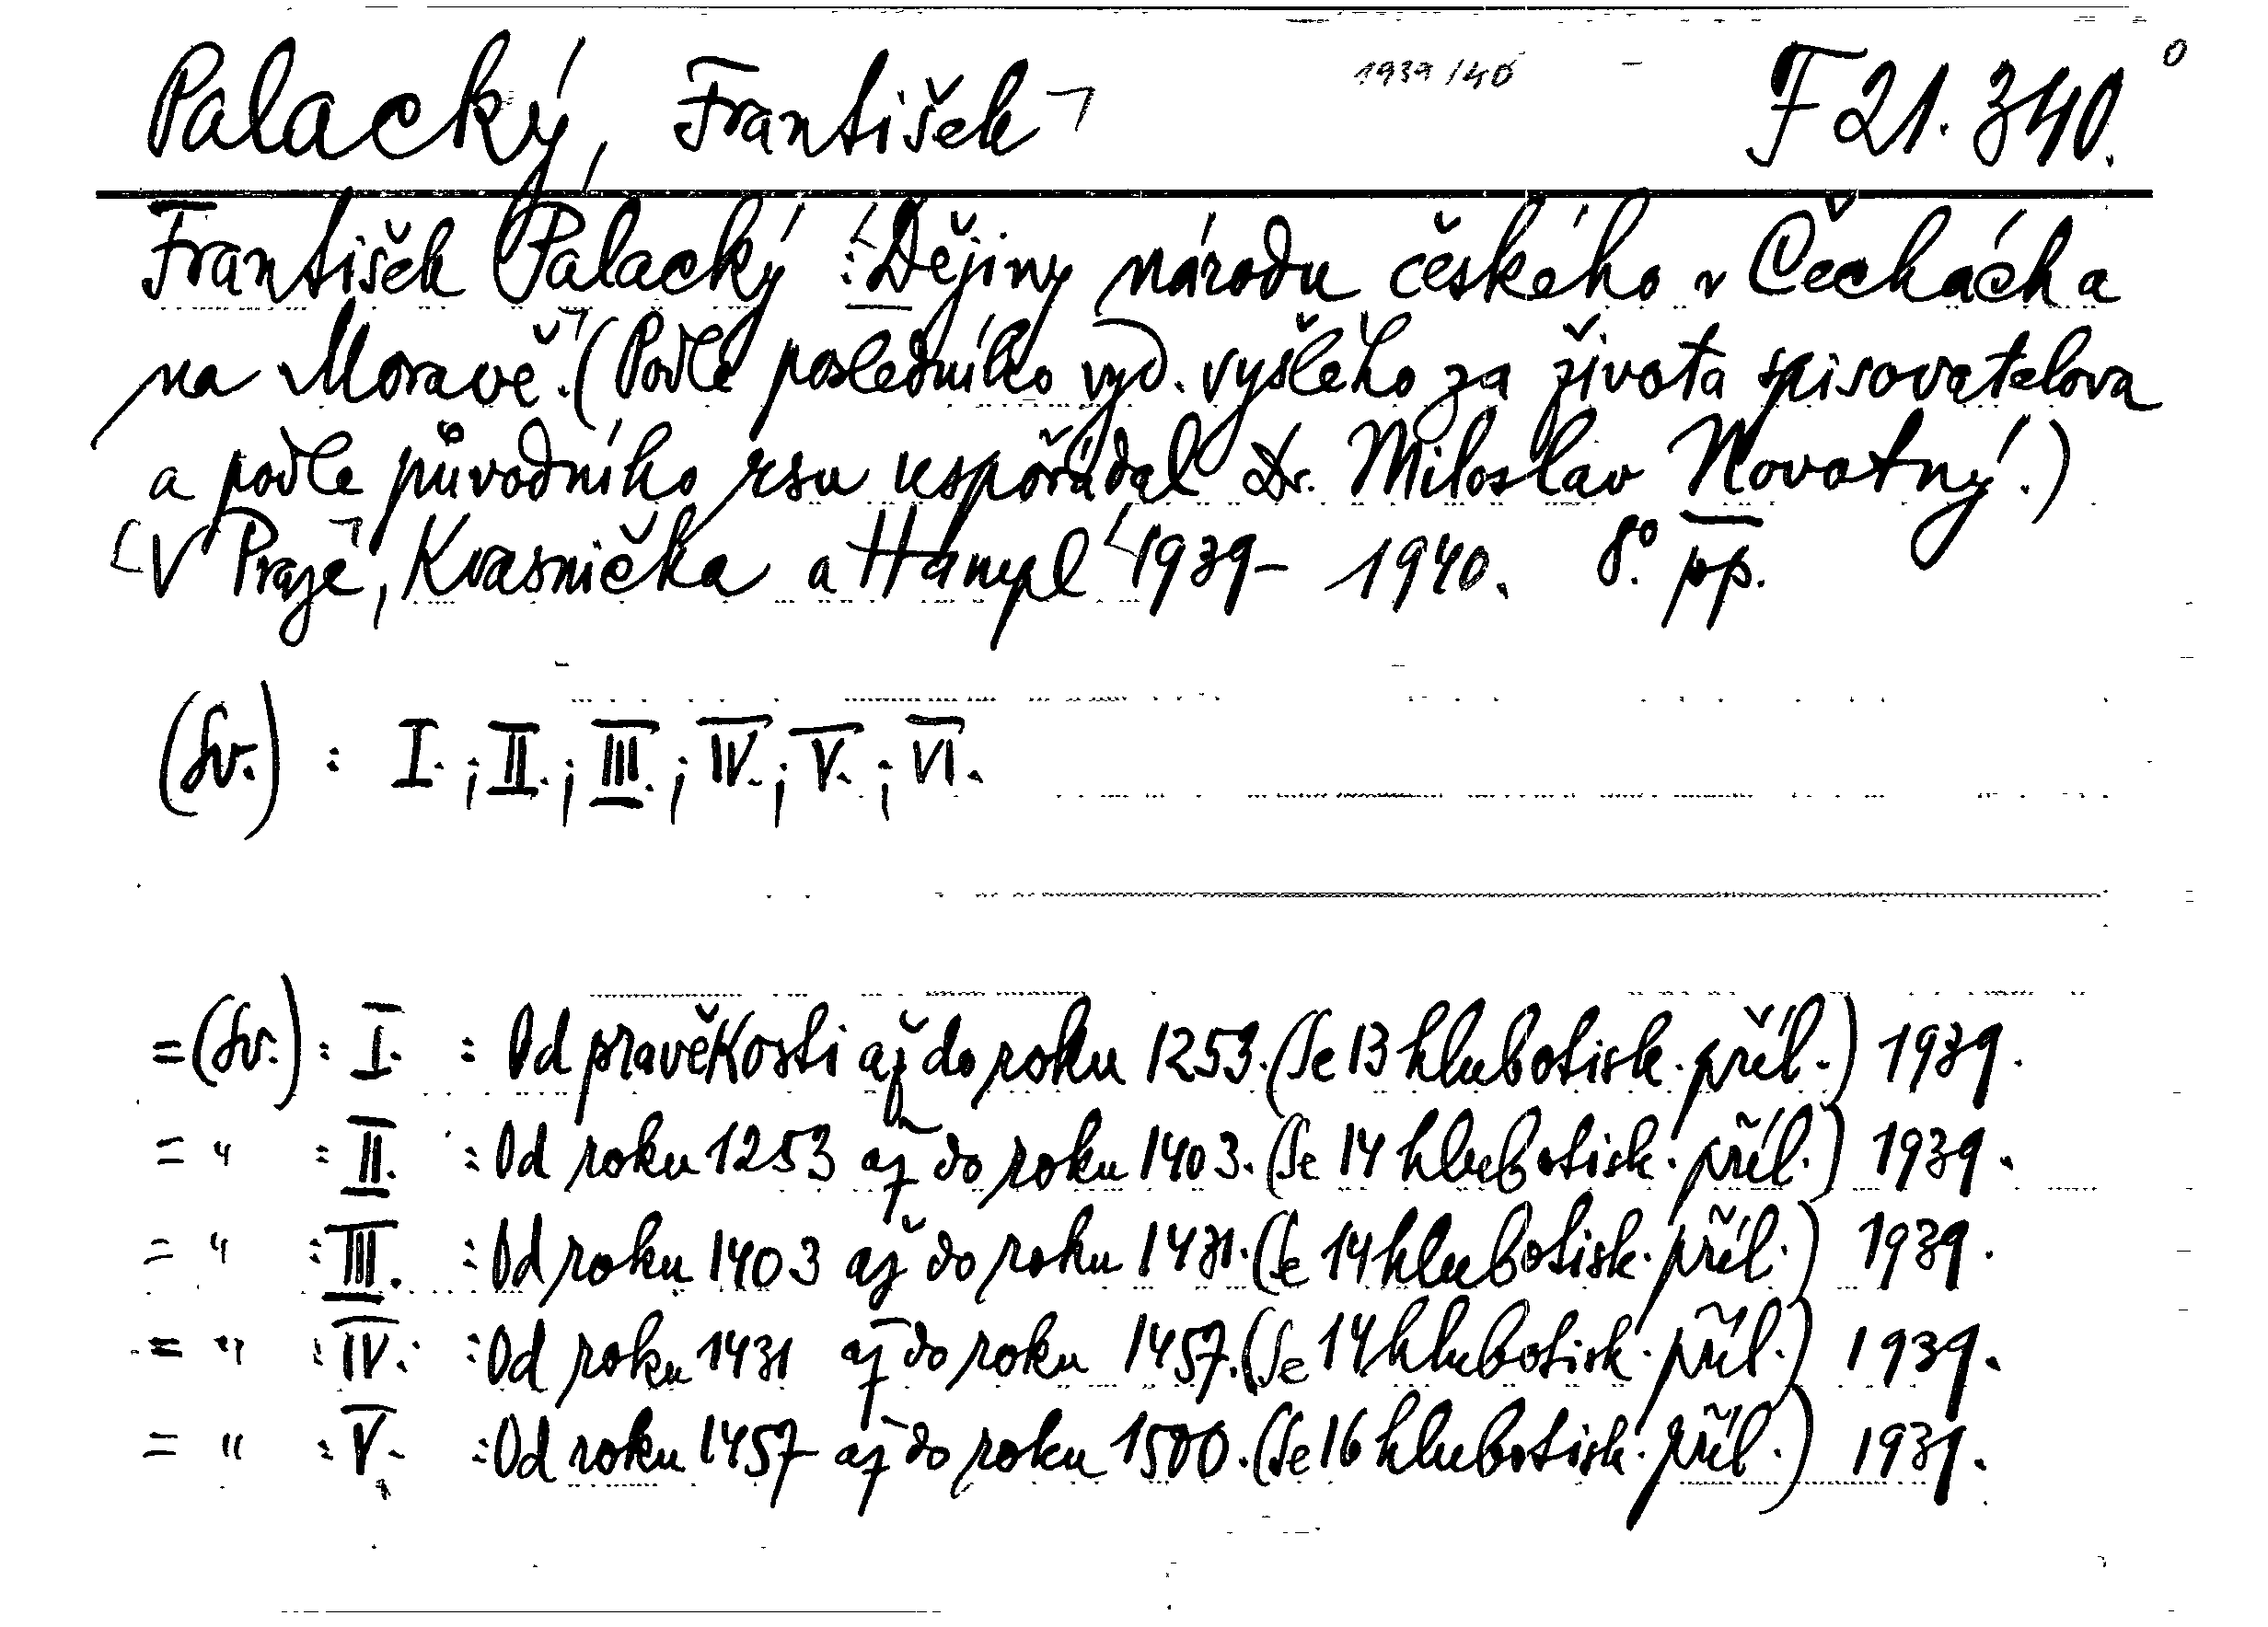 Palacký, František 1939/40 F 21.340.
František Palacký : Dějiny národu českého v Čechách a
na Moravě. (Podle posledního vyd. vyšlého za života spisovatelova
a podle původního rsu uspořádal Dr. Miloslav Novotný.)
V Praze, Kvasnička a Hampl 1939 - 1940. 8°. pp.
(Sv.) : I.; II.; III.; IV.; V.; VI.
= (Sv.) : I. : Od pravěkosti až do roku 1253. (Se 13 hlubotisk. příl.) 1939.
= " : II. : Od roku 1253 až do roku 1403. (Se 14 hlubotisk. příl.) 1939.
= " : III. : Od roku 1403 až do roku 1431. (Se 14 hlubotisk. příl.) 1939.
= " : IV. : Od roku 1431 až do roku 1457. (Se 14 hlubotisk. příl.) 1939.
= " : V. : Od roku 1457 až do roku 1500. (Se 16 hlubotisk. příl.) 1939.